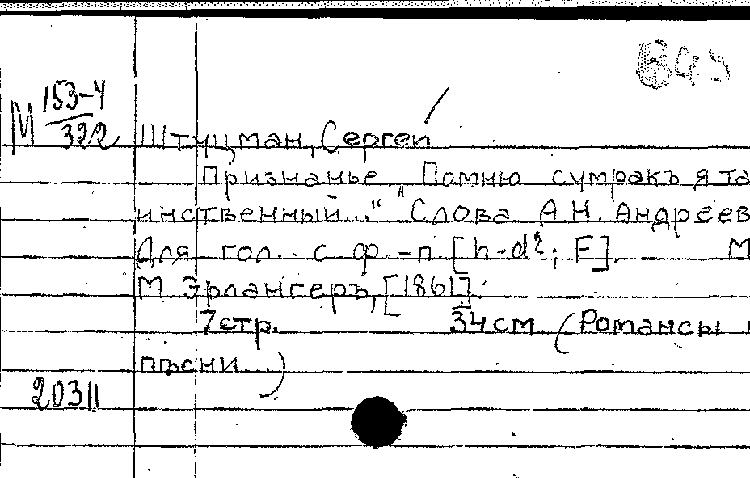 М 153-4/322
Штуцман, Сергей
Признанье „Помню сумракъ я та
инственный..." Слова А.Н. Андреев
Для гол. с ф.-п [h-d²; F]. М
М Эрлангеръ, [1861].
7стр. 34см (Романсы
пѣсни...)
20311